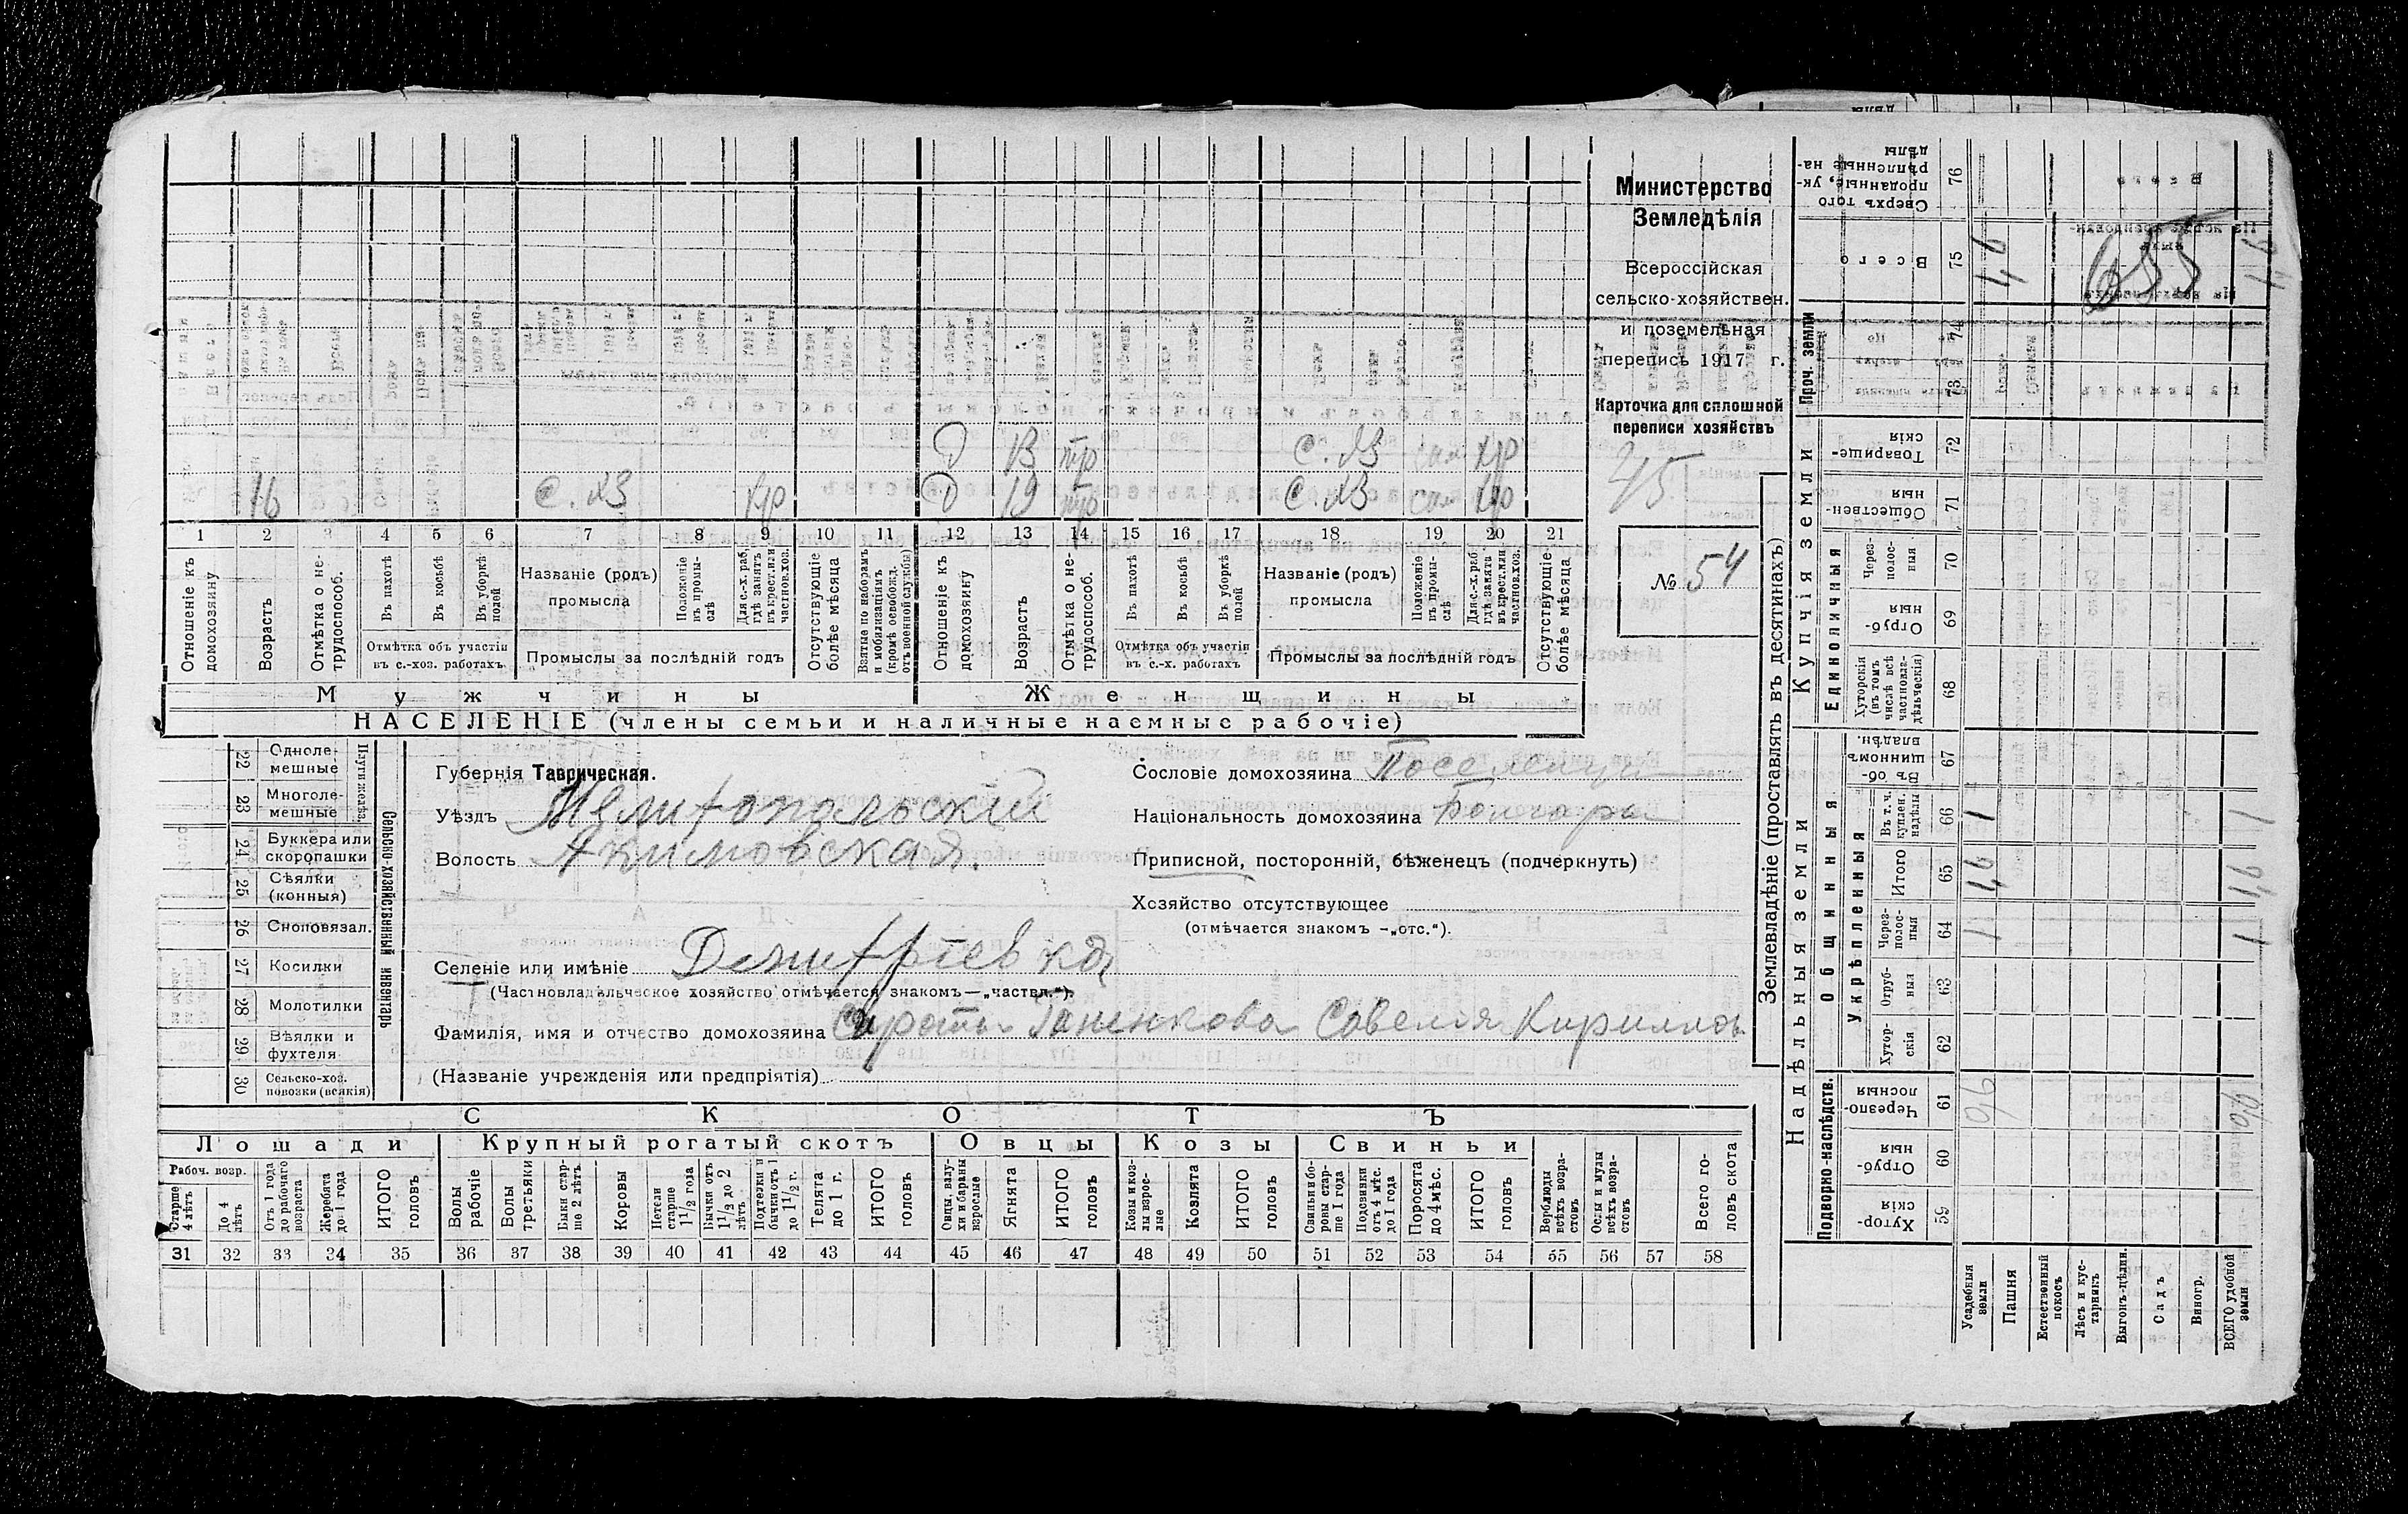 Министерство
Земледѣлія
Всероссійская
сельско-хозяйствен.
и поземельная
перепись 1917 г.
Карточка для сплошной
переписи хозяйствъ
45
№ 54
Д 13 тр с. хз кр
16 с. хз кр Д 19 тр с. хз кр
1 2 3 4 5 6 7 8 9 10 11 12 13 14 15 16 17 18 19 20 21
Отношеніе къ домохозяину
Возрастъ
Отмѣтка о не-трудоспособ.
Въ пахотѣ
Въ косьбѣ
Въ уборкѣ полей
Отмѣтка объ участіи въ с.-хоз. работахъ
Названіе (родъ) промысла
Положеніе въ промы-слѣ
Для с.-х. раб. гдѣ занятъ въ крест. или частнов. хоз.
Промыслы за послѣдній годъ
Отсутствующіе болѣе мѣсяца
Взятые по наборамъ и мобилизаціямъ (кромѣ освобожд. отъ военной службы)
Отношеніе къ домохозяину
Возрастъ
Отмѣтка о не-трудоспособ.
Въ пахотѣ
Въ косьбѣ
Въ уборкѣ полей
Отмѣтка объ участіи въ с.-х. работахъ
Названіе (родъ) промысла
Положеніе въ промы-слѣ
Для с.-х. раб. гдѣ занята въ крест. или частнов. хоз.
Промыслы за послѣдній годъ
Отсутствующіе болѣе мѣсяца
Мужчины Женщины
НАСЕЛЕНІЕ (члены семьи и наличные наемные рабочіе)
Сельско-хозяйственный инвентарь
Плуги желѣз.
22 Одноле-мешные
23 Многоле-мешные
24 Буккера или скоропашки
25 Сѣялки (конныя)
26 Сноповязал.
27 Косилки
28 Молотилки
29 Вѣялки и фухтеля
30 Сельско-хоз. повозки (всякія)
Губернія Таврическая.
Уѣздъ Мелитопольскій
Волость Акимовская.
Селеніе или имѣніе Дмитріевка
(Частновладѣльческое хозяйство отмѣчается знакомъ—„частвл.“).
Фамилія, имя и отчество домохозяина Сироты Ганенкова Савелія Кирилов
(Названіе учрежденія или предпріятія)
Сословіе домохозяина Поселенцы
Національность домохозяина Болгары
Приписной, посторонній, бѣженецъ (подчеркнуть)
Хозяйство отсутствующее
(отмѣчается знакомъ -„отс.“).
СКОТЪ
Лошади Крупный рогатый скотъ Овцы Козы Свиньи
Рабоч. возр.
Старше 4 лѣтъ
До 4 лѣтъ
Отъ 1 года до рабочаго возраста
Жеребята до 1 года
ИТОГО головъ
Волы рабочіе
Волы третьяки
Быки стар-ше 2 лѣтъ
Коровы
Нетели старше 1 1/2 года
Бычки отъ 1 1/2 до 2 лѣтъ
Подтелки и бычки отъ 1 до 1 1/2 г.
Телята до 1 г.
ИТОГО головъ
Овцы, валу-хи и бараны взрослые
Ягнята
ИТОГО головъ
Козы и коз-лы взрос-лые
Козлята
ИТОГО головъ
Свиньи и бо-ровы стар-ше 1 года
Подсвинки отъ 4 мѣс. до 1 года
Поросята до 4 мѣс.
ИТОГО головъ
Верблюды всѣхъ возра-стовъ
Ослы и мулы всѣхъ возра-стовъ
Всего го-ловъ скота
31 32 33 34 35 36 37 38 39 40 41 42 43 44 45 46 47 48 49 50 51 52 53 54 55 56 57 58
Землевладѣніе (проставлять въ десятинахъ)
Надѣльныя земли
Купчія земли
Проч. земли
Подворно-наслѣдств.
Общинныя
Укрѣпленныя
Единоличныя
Хутор-скія 59
Отруб-ныя 60
Черезпо-лосныя 61
Хутор-скія 62
Отруб-ныя 63
Через-полос-ныя 64
Итого 65
Въ т. ч. куплен. надѣлы 66
Въ об-щинномъ владѣн. 67
Хуторскія (въ томъ числѣ всѣ частновла-дѣльческія) 68
Отруб-ныя 69
Через-полос-ныя 70
Обществен-ныя 71
Товарище-скія 72
73
74
Всего 75
Сверхъ того проданные, ук-рѣпленные на-дѣлы 76
Усадебныя земли
Пашня
Естественный покосъ
Лѣсъ и кус-тарникъ
Выгонъ-цѣлин.
Садъ
Виногр.
ВСЕГО удобной земли
655